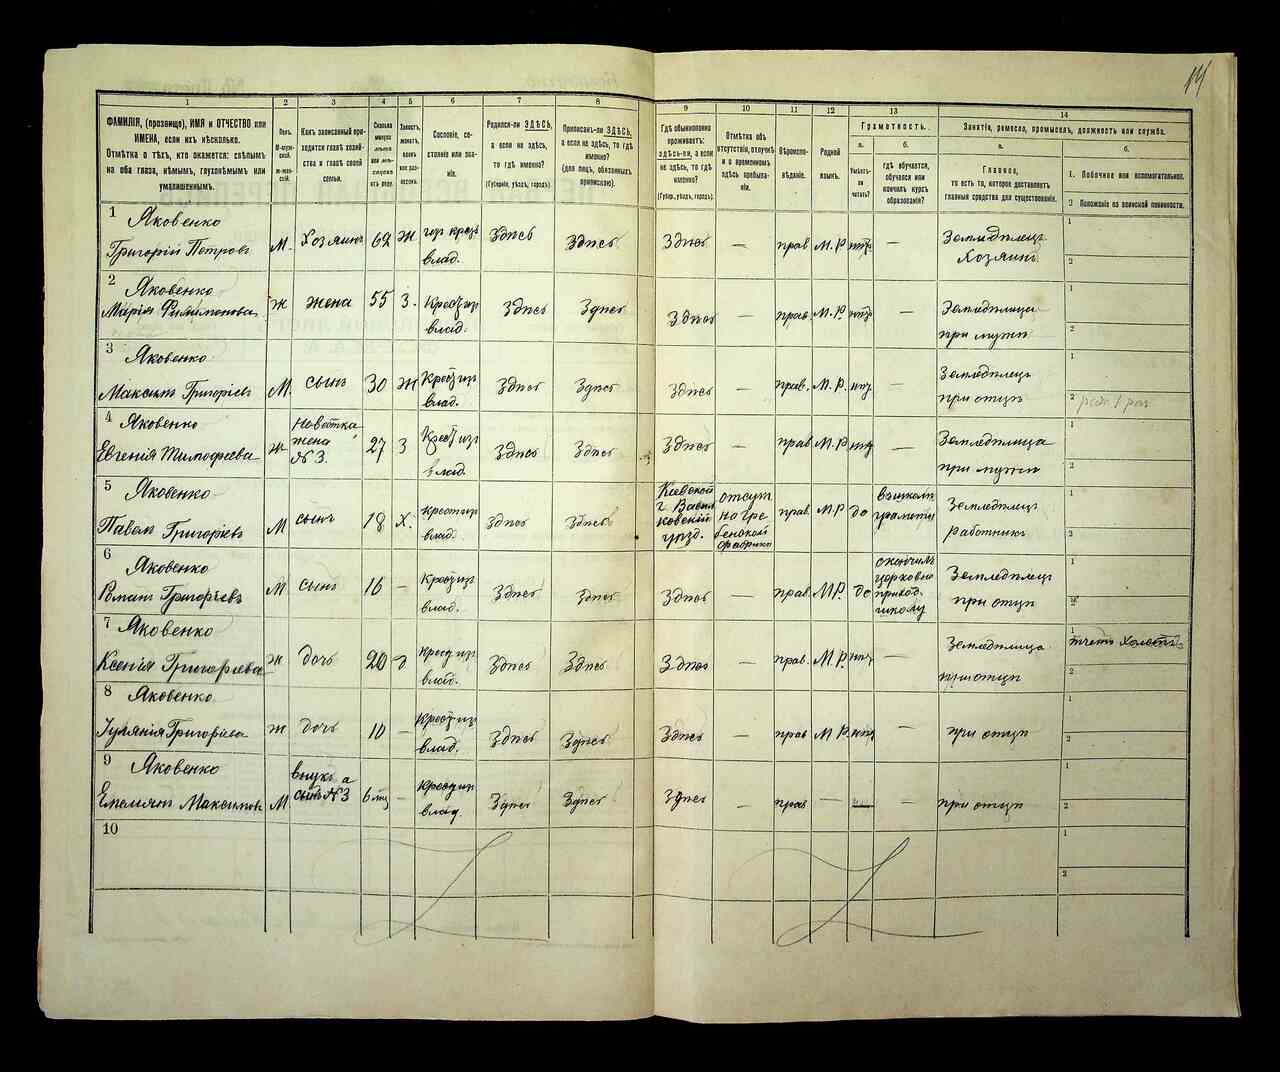 14
1 2 3 4 5 6 7 8 9 10 11 12 13 14
ФАМИЛІЯ, (прозвище), ИМЯ и ОТЧЕСТВО или
ИМЕНА, если ихъ нѣсколько.
Отмѣтка о тѣхъ, кто окажется: слѣпымъ
на оба глаза, нѣмымъ, глухонѣмымъ или
умалишеннымъ.
Полъ.
М-мужской.
Ж-женскій.
Какъ записанный приходится
главѣ хозяйства
и главѣ своей
семьи.
Сколько
минуло
лѣтъ или
мѣсяцевъ
отъ роду.
Холостъ,
женатъ,
вдовъ
или разведенъ.
Сословіе, состояніе
или званіе.
Родился-ли ЗДѢСЬ,
а если не здѣсь,
то гдѣ именно?
(Губернія, уѣздъ, городъ).
Приписанъ-ли ЗДѢСЬ,
а если не здѣсь, то гдѣ
именно?
(для лицъ, обязанныхъ
припискою).
Гдѣ обыкновенно
проживаетъ:
здѣсь-ли, а если
не здѣсь, то гдѣ
именно?
(Губерн., уѣздъ, городъ).
Отмѣтка объ
отсутствіи, отлучкѣ
и о временномъ
здѣсь пребываніи.
Вѣроисповѣданіе.
Родной
языкъ.
Грамотность.
а.
Умѣетъ-ли
читать?
б.
гдѣ обучается,
обучался или
кончилъ курсъ
образованія?
Занятіе, ремесло, промыселъ, должность или служба.
а.
Главное,
то есть то, которое доставляетъ
главныя средства для существованія.
б.
1. Побочное или вспомогательное.
2 Положеніе по воинской повинности.
1 Яковенко
Григорій Петровъ М. Хозяинъ 62 ж крес владъ. Здѣсь Здѣсь Здѣсь — прав М. Р нѣтъ — Земледѣлецъ
Хозяинъ 1 2
2 Яковенко
Марія Филимонова ж жена 55 З. Крест из влад. Здѣсь Здѣсь Здѣсь — прав. М. Р. нѣтъ — Земледѣлица
при мужѣ 1 2
3 Яковенко
Максимъ Григорьевъ М. сынъ 30 ж Крест из влад. Здѣсь Здѣсь Здѣсь — прав. М. Р. нѣт — Земледѣлецъ
при отцѣ 1 2
4 Яковенко
Евгенія Тимофеева ж Невѣстка жена №3. 27 З Крест из влад. Здѣсь Здѣсь Здѣсь — прав М. Р нѣт — Земледѣлица
при мужѣ 1 2
5 Яковенко
Павелъ Григорьевъ М сынъ 18 Х. крест из влад. Здѣсь Здѣсь Кіевской г. Васильковскій уѣзд. отсут прав М. Р да грамоты Земледѣлецъ
Работникъ 1 2
6 Яковенко
Романъ Григорьевъ М сынъ 16 — Крест из влад. Здѣсь Здѣсь Здѣсь — прав. М Р. да окончилъ церковно приход. школу Земледѣлец
при отцѣ 1 2
7 Яковенко
Ксенія Григорьева ж дочь 20 д крест из влад. Здѣсь Здѣсь Здѣсь — прав. М Р нѣт — Земледѣлица
при отцѣ 1 ткетъ Холстъ 2
8 Яковенко
Іуліанія Григорьева ж дочь 10 — Крест из влад. Здѣсь Здѣсь Здѣсь — прав М Р нѣт — при отцѣ 1 2
9 Яковенко
Емельянъ Максимовъ М внукъ а сынъ №3 6 мц — крест из влад. Здѣсь Здѣсь Здѣсь — прав — — при отцѣ 1 2
10 1 2